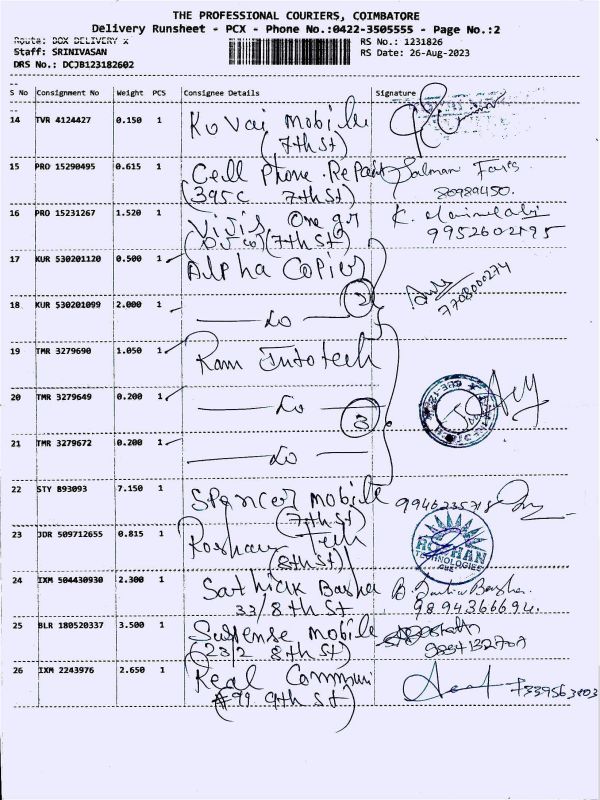 THE PROFESSIONAL COURIERS, COIMBATORE
Delivery Runsheet - PCX - Phone No.:0422-3505555 - Page No.:2
Route: BOX DELIVERY X
RS No.: 1231826
Staff: SRINIVASAN
RS Date: 26-Aug-2023
DRS No.: DCJB123182602
S No Consignment No Weight PCS Consignee Details Signature
14 TVR 4124427 0.150 1 Kovai mobile
(7th St)
15 PRO 15290495 0.615 1 Cell Phone Repair Salman Faris
(395c 7th St)
16 PRO 15231267 1.520 1 Vijis One gr
(7th St) 9952602195
17 KUR 530201120 0.500 1 Alpha Copier
7708000274
18 KUR 530201099 2.000 1 Do 2
19 TMR 3279690 1.050 1 Ram Infotech
20 TMR 3279649 0.200 1 Do 3
21 TMR 3279672 0.200 1 Do
22 STY 893093 7.150 1 Spencer mobile 9946235718
(7th St)
23 JDR 509712655 0.815 1 Roshan Tech
(8th St)
ROSHAN
TECHNOLOGIES
CBE
24 IXM 504430930 2.300 1 Sathick Basha
33/8th St 9894366694.
25 BLR 180520337 3.500 1 Suspense mobile
(23/2 8th St)
26 IXM 2243976 2.650 1 Real Communi
(#99 9th St)